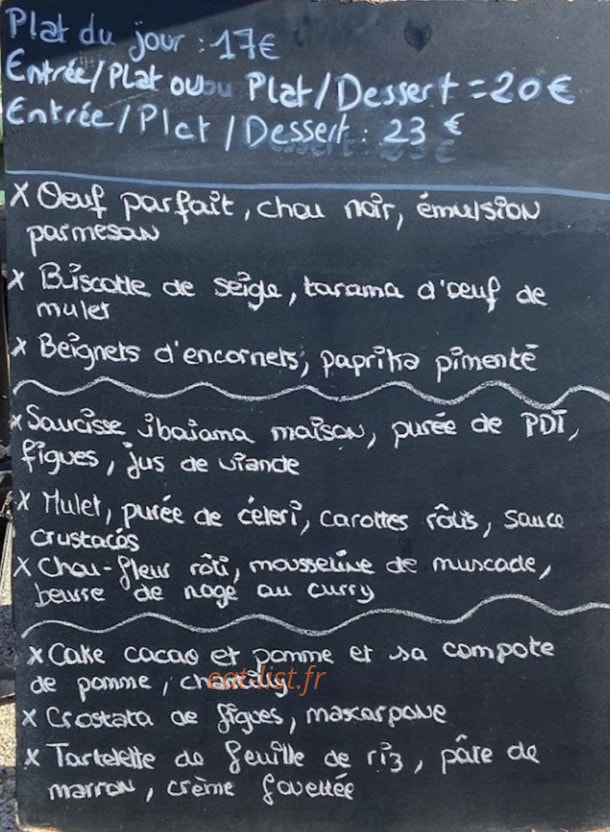 Plat du jour : 17€
Entrée/Plat ou Plat/Dessert = 20€
Entrée/Plat/Dessert : 23 €
x Oeuf parfait, chou noir, émulsion
parmesan
x Biscotte de seigle, tarama d'oeuf de
mulet
x Beignets d'encornets, paprika pimenté
x Saucisse ibaiama maison, purée de PDT,
figues, jus de viande
x Mulet, purée de céleri, carottes rôtis, sauce
crustacés
x Chou-fleur rôti, mousseline de muscade,
beurre de nage au curry
x Cake cacao et pomme et sa compote
de pomme, chantilly
eat-list.fr
x Crostata de figues, mascarpone
x Tartelette de feuille de riz, pâte de
marron, crème fouettée